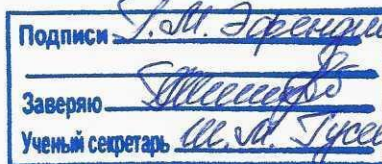 Подписи Г.М. Эфенди
Заверяю
Ученый секретарь Ш.М. Гусе